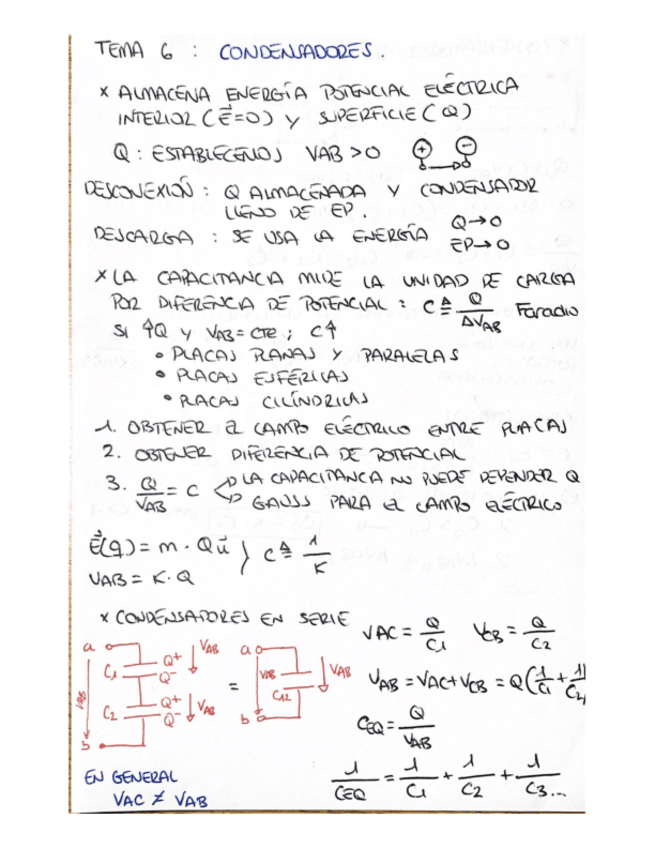 TEMA 6 : CONDENSADORES.
x ALMACENA ENERGÍA POTENCIAL ELÉCTRICA
INTERIOR (E⃗=0) Y SUPERFICIE (Q)
Q : ESTABLECEMOS VAB > 0 + -
DESCONEXIÓN : Q ALMACENADA Y CONDENSADOR
LLENO DE EP.
DESCARGA : SE USA LA ENERGÍA Q→0
EP→0
x LA CAPACITANCIA MIDE LA UNIDAD DE CARGA
POR DIFERENCIA DE POTENCIAL : C ≜ Q/ΔVAB Faradio
SI ↑Q Y VAB = CTE ; C↑
• PLACAS PLANAS Y PARALELAS
• PLACAS ESFÉRICAS
• PLACAS CILÍNDRICAS
1. OBTENER EL CAMPO ELÉCTRICO ENTRE PLACAS
2. OBTENER DIFERENCIA DE POTENCIAL
3. Q/VAB = C LA CAPACITANCIA NO PUEDE DEPENDER Q
GAUSS PARA EL CAMPO ELÉCTRICO
E⃗(q) = m · Q u⃗ } C ≜ 1/K
VAB = K · Q
x CONDENSADORES EN SERIE
VAC = Q/C1 VCB = Q/C2
a C1 Q+ Q- VAB C2 Q+ Q- VAB b VAB
=
a VAB C12 VAB b
VAB = VAC + VCB = Q(1/C1 + 1/C2)
CEQ = Q/VAB
1/CEQ = 1/C1 + 1/C2 + 1/C3...
EN GENERAL
VAC ≠ VAB